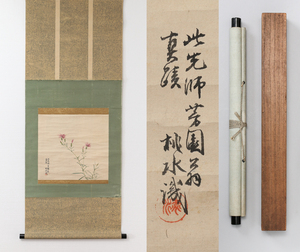 此先師芳園翁
真蹟
桃水識